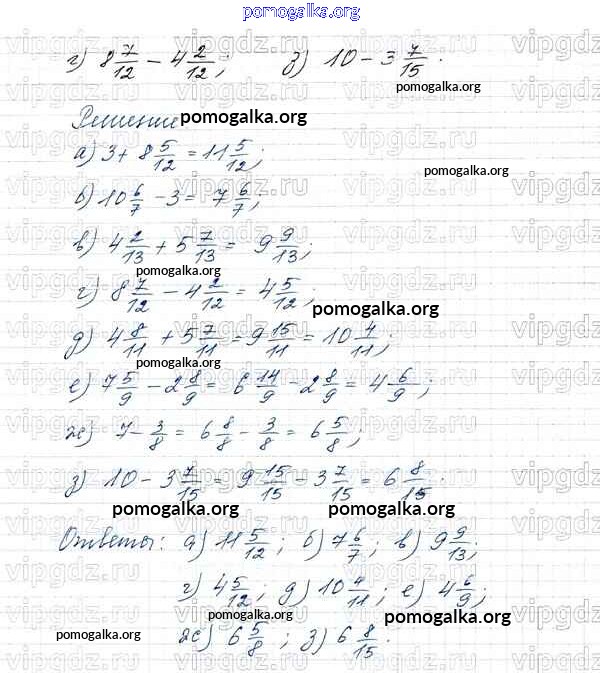 pomogalka.org
г) 8 7/12 − 4 2/12; з) 10 − 3 7/15.
Решение
pomogalka.org
а) 3 + 8 5/12 = 11 5/12;
pomogalka.org
б) 10 6/7 − 3 = 7 6/7;
в) 4 2/13 + 5 7/13 = 9 9/13;
pomogalka.org
г) 8 7/12 − 4 2/12 = 4 5/12;
pomogalka.org
д) 4 8/11 + 5 7/11 = 9 15/11 = 10 4/11;
pomogalka.org
е) 7 5/9 − 2 8/9 = 6 14/9 − 2 8/9 = 4 6/9;
ж) 7 − 3/8 = 6 8/8 − 3/8 = 6 5/8;
з) 10 − 3 7/15 = 9 15/15 − 3 7/15 = 6 8/15.
pomogalka.org pomogalka.org
Ответы: а) 11 5/12; б) 7 6/7; в) 9 9/13;
г) 4 5/12; д) 10 4/11; е) 4 6/9;
pomogalka.org
ж) 6 5/8; з) 6 8/15.
pomogalka.org
vipgdz.ru